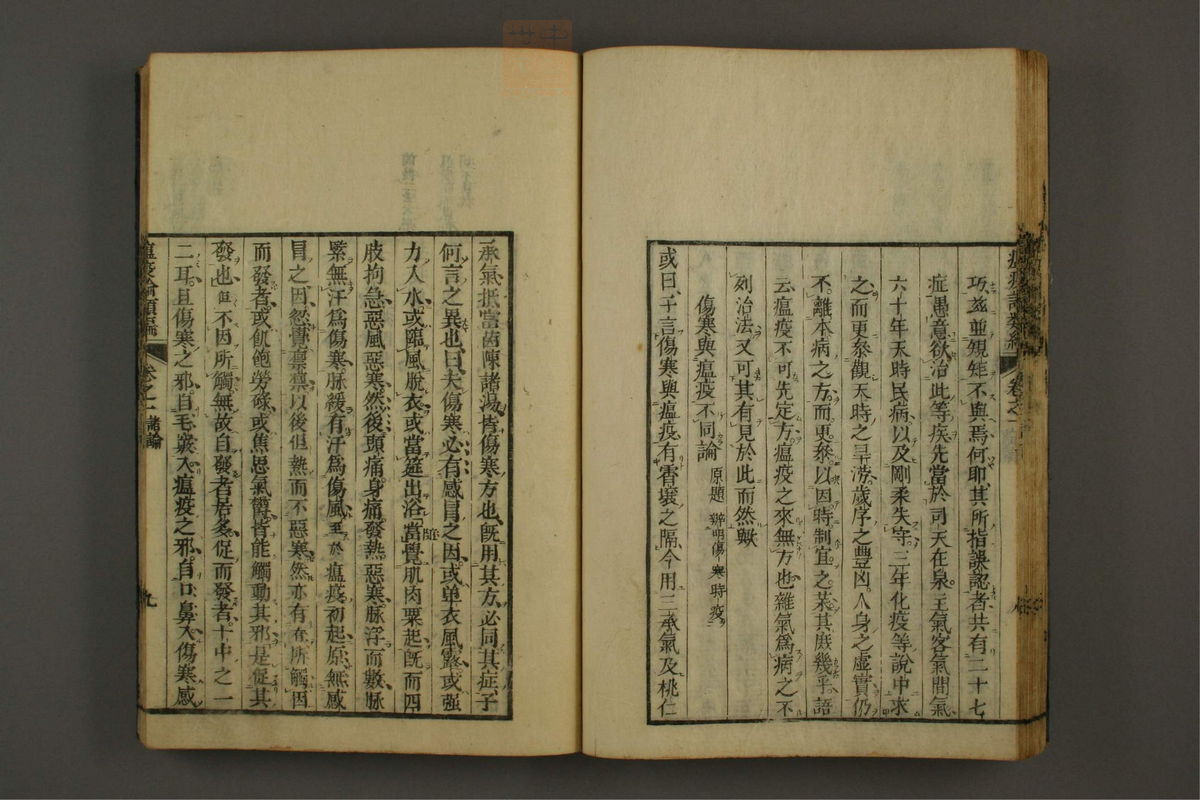 巧玆並矩矩不與焉何耶其所指誤認者共有二十七
症愚意欲治此等疾先當於司天在泉主氣客氣間氣
六十年天時民病以及剛柔失守三年化疫等說中求
之而更叅觀天時之旱澇歲序之豐凶人身之虛實仍
不離本病之方而更叅以因時制宜之某其庶幾乎語
云瘟疫不可先定方瘟疫之來無方也雜氣爲病之不
列治法又可其有見於此而然歟
傷寒與瘟疫不同論 原題 辨明傷寒時疫
或曰子言傷寒與瘟疫有霄壤之隔今用三承氣及桃仁
承氣抵當茵陳諸湯皆傷寒方也旣用其方必同其症子
何言之異也曰夫傷寒必有感冒之因或单衣風露或强
力入水或臨風脫衣或當簷出浴當覺肌肉粟起旣而四
肢拘急惡風惡寒然後頭痛身痛發熱惡寒脉浮而數脉
緊無汗爲傷寒脉緩有汗爲傷風至於瘟疫初起原無感
冒之因忽覺凛凛以後但熱而不惡寒然亦有有所觸因
而發者或飢飽勞碌或焦思氣鬱皆能觸動其邪是促其
發也但不因所觸無故自發者居多促而發者十中之一
二耳且傷寒之邪自毛竅入瘟疫之邪自口鼻入傷寒感
瘟疫論類編 卷之二 諸論 九